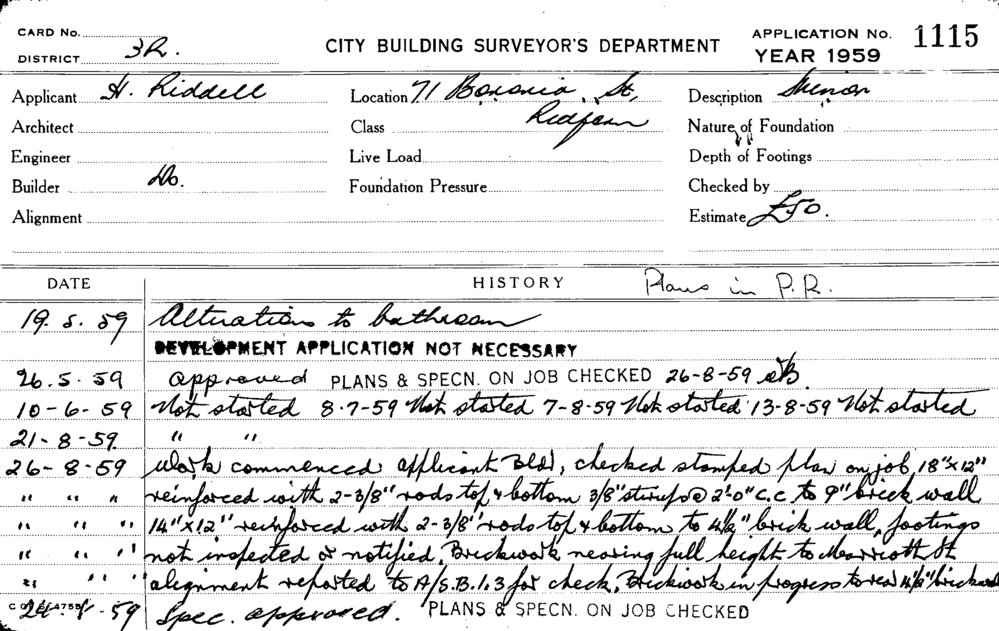 CARD No.
DISTRICT 3R.
CITY BUILDING SURVEYOR'S DEPARTMENT
APPLICATION No. 1115
YEAR 1959
Applicant H. Riddell Location 71 Boronia St, Description Minor
Redfern
Architect Class Nature of Foundation
Engineer Live Load Depth of Footings
Builder Do. Foundation Pressure Checked by
Alignment Estimate £50.
DATE HISTORY Plans in P.R.
19. 5. 59 Alterations to bathroom
DEVELOPMENT APPLICATION NOT NECESSARY
26. 5. 59 approved PLANS & SPECN. ON JOB CHECKED 26-8-59
10-6-59 Not started 8-7-59 Not started 7-8-59 Not started 13-8-59 Not started
21-8-59. " "
26-8-59 Work commenced applicant Bldr, checked stamped plan on job, 18"x12"
" " " reinforced with 2-3/8" rods top & bottom 3/8" stirrups @ 2'0" c.c. to 9" brick wall
" " " 14"x12" reinforced with 2-3/8" rods top & bottom to 4½" brick wall, footings
" " " not inspected or notified, Brickwork nearing full height to Marriott St
" " " alignment reported to A/S.B.I.3 for check, Brickwork in progress to rear 4½" brickwork
59 Spec. approved. PLANS & SPECN. ON JOB CHECKED